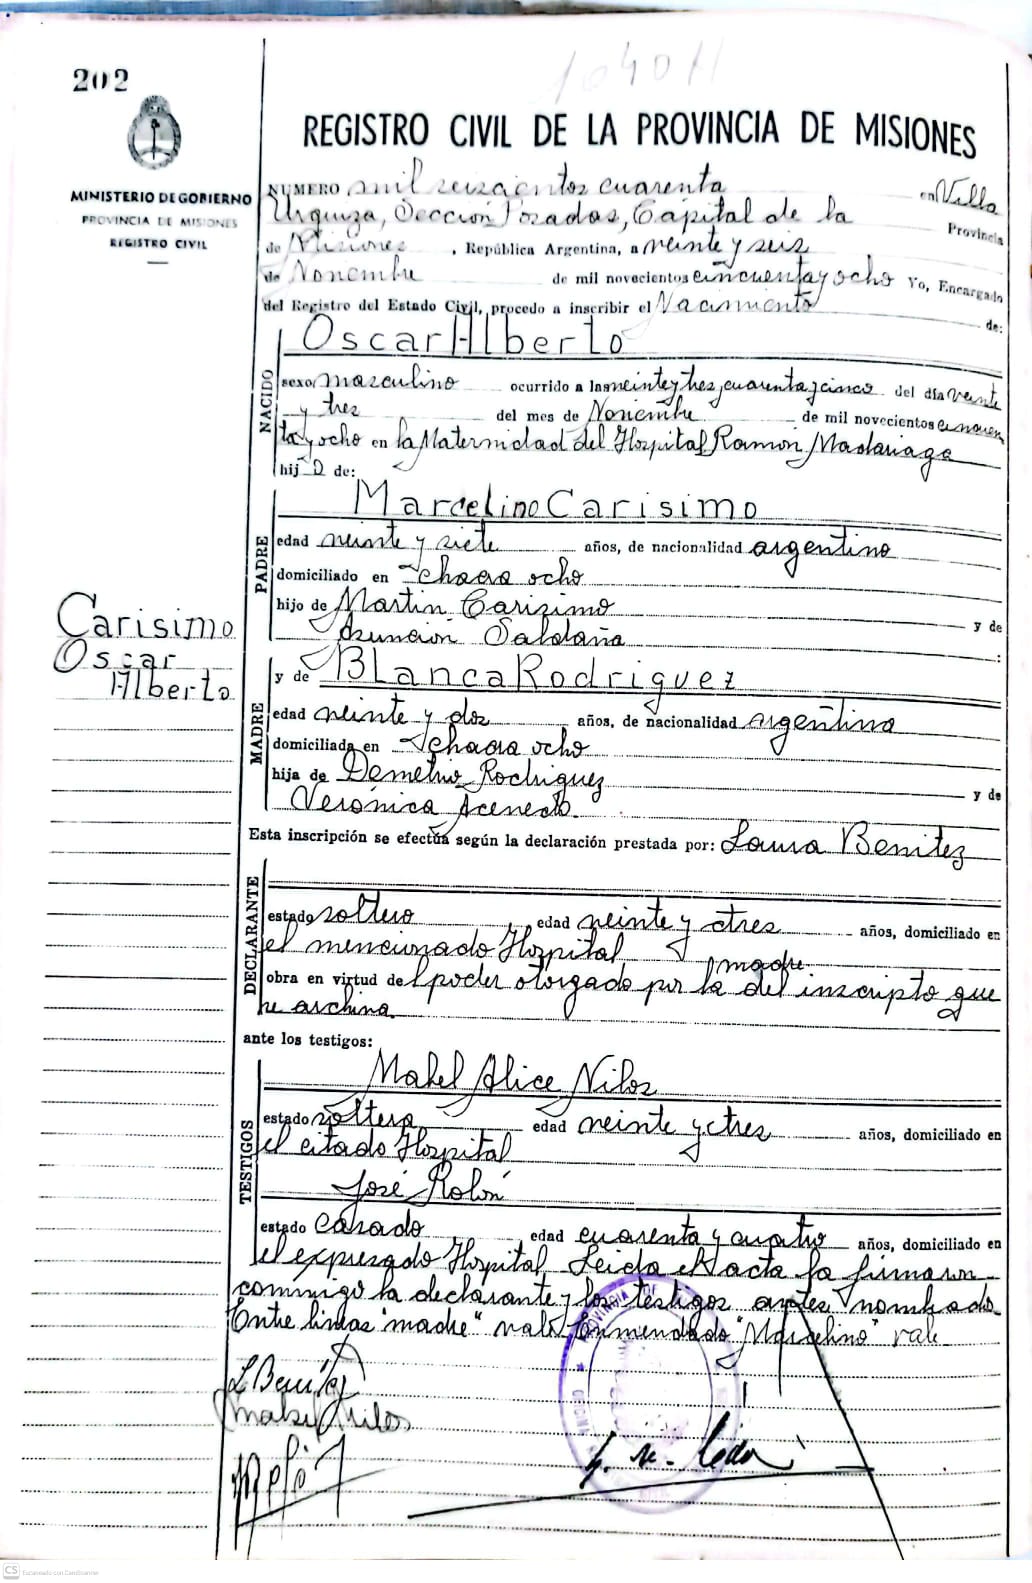 202
MINISTERIO DE GOBIERNO
PROVINCIA DE MISIONES
REGISTRO CIVIL
REGISTRO CIVIL DE LA PROVINCIA DE MISIONES
NUMERO mil seiscientos cuarenta en Villa
Urquiza, Sección Posadas, Capital de la Provincia
de Misiones, República Argentina, a veinte y seis
de Noviembre de mil novecientos cincuenta y ocho Yo, Encargado
del Registro del Estado Civil, procedo a inscribir el Nacimiento de:
NACIDO
Oscar Alberto
sexo masculino ocurrido a las veinte y tres, cuarenta y cinco del día veinte
y tres del mes de Noviembre de mil novecientos cincuen
ta y ocho en la Maternidad del Hospital Ramón Madariaga
hijo de:
PADRE
Marcelino Carisimo
edad veinte y siete años, de nacionalidad argentino
domiciliado en chacra ocho
hijo de Martín Carisimo y de
Asunción Saldaña :
Carisimo
Oscar
Alberto
MADRE
y de Blanca Rodriguez
edad veinte y dos años, de nacionalidad argentina
domiciliada en chacra ocho
hija de Demetrio Rodriguez y de
Verónica Acevedo.
Esta inscripción se efectúa según la declaración prestada por: Laura Benitez
DECLARANTE
estado soltera edad veinte y tres años, domiciliado en
el mencionado Hospital
madre
obra en virtud del poder otorgado por la del inscripto que
se archiva.
ante los testigos:
TESTIGOS
Mabel Alice Nilos
estado soltera edad veinte y tres años, domiciliado en
el citado Hospital
José Rolón
estado casado edad cuarenta y cuatro años, domiciliado en
el expresado Hospital Leida el acta la firmaron
conmigo la declarante y los testigos antes nombrado.
Entre lineas "madre" vale Enmendado "Marcelino" vale
L Benítez
Mabel Nilos
PROVINCIA DE
CS Escaneado con CamScanner